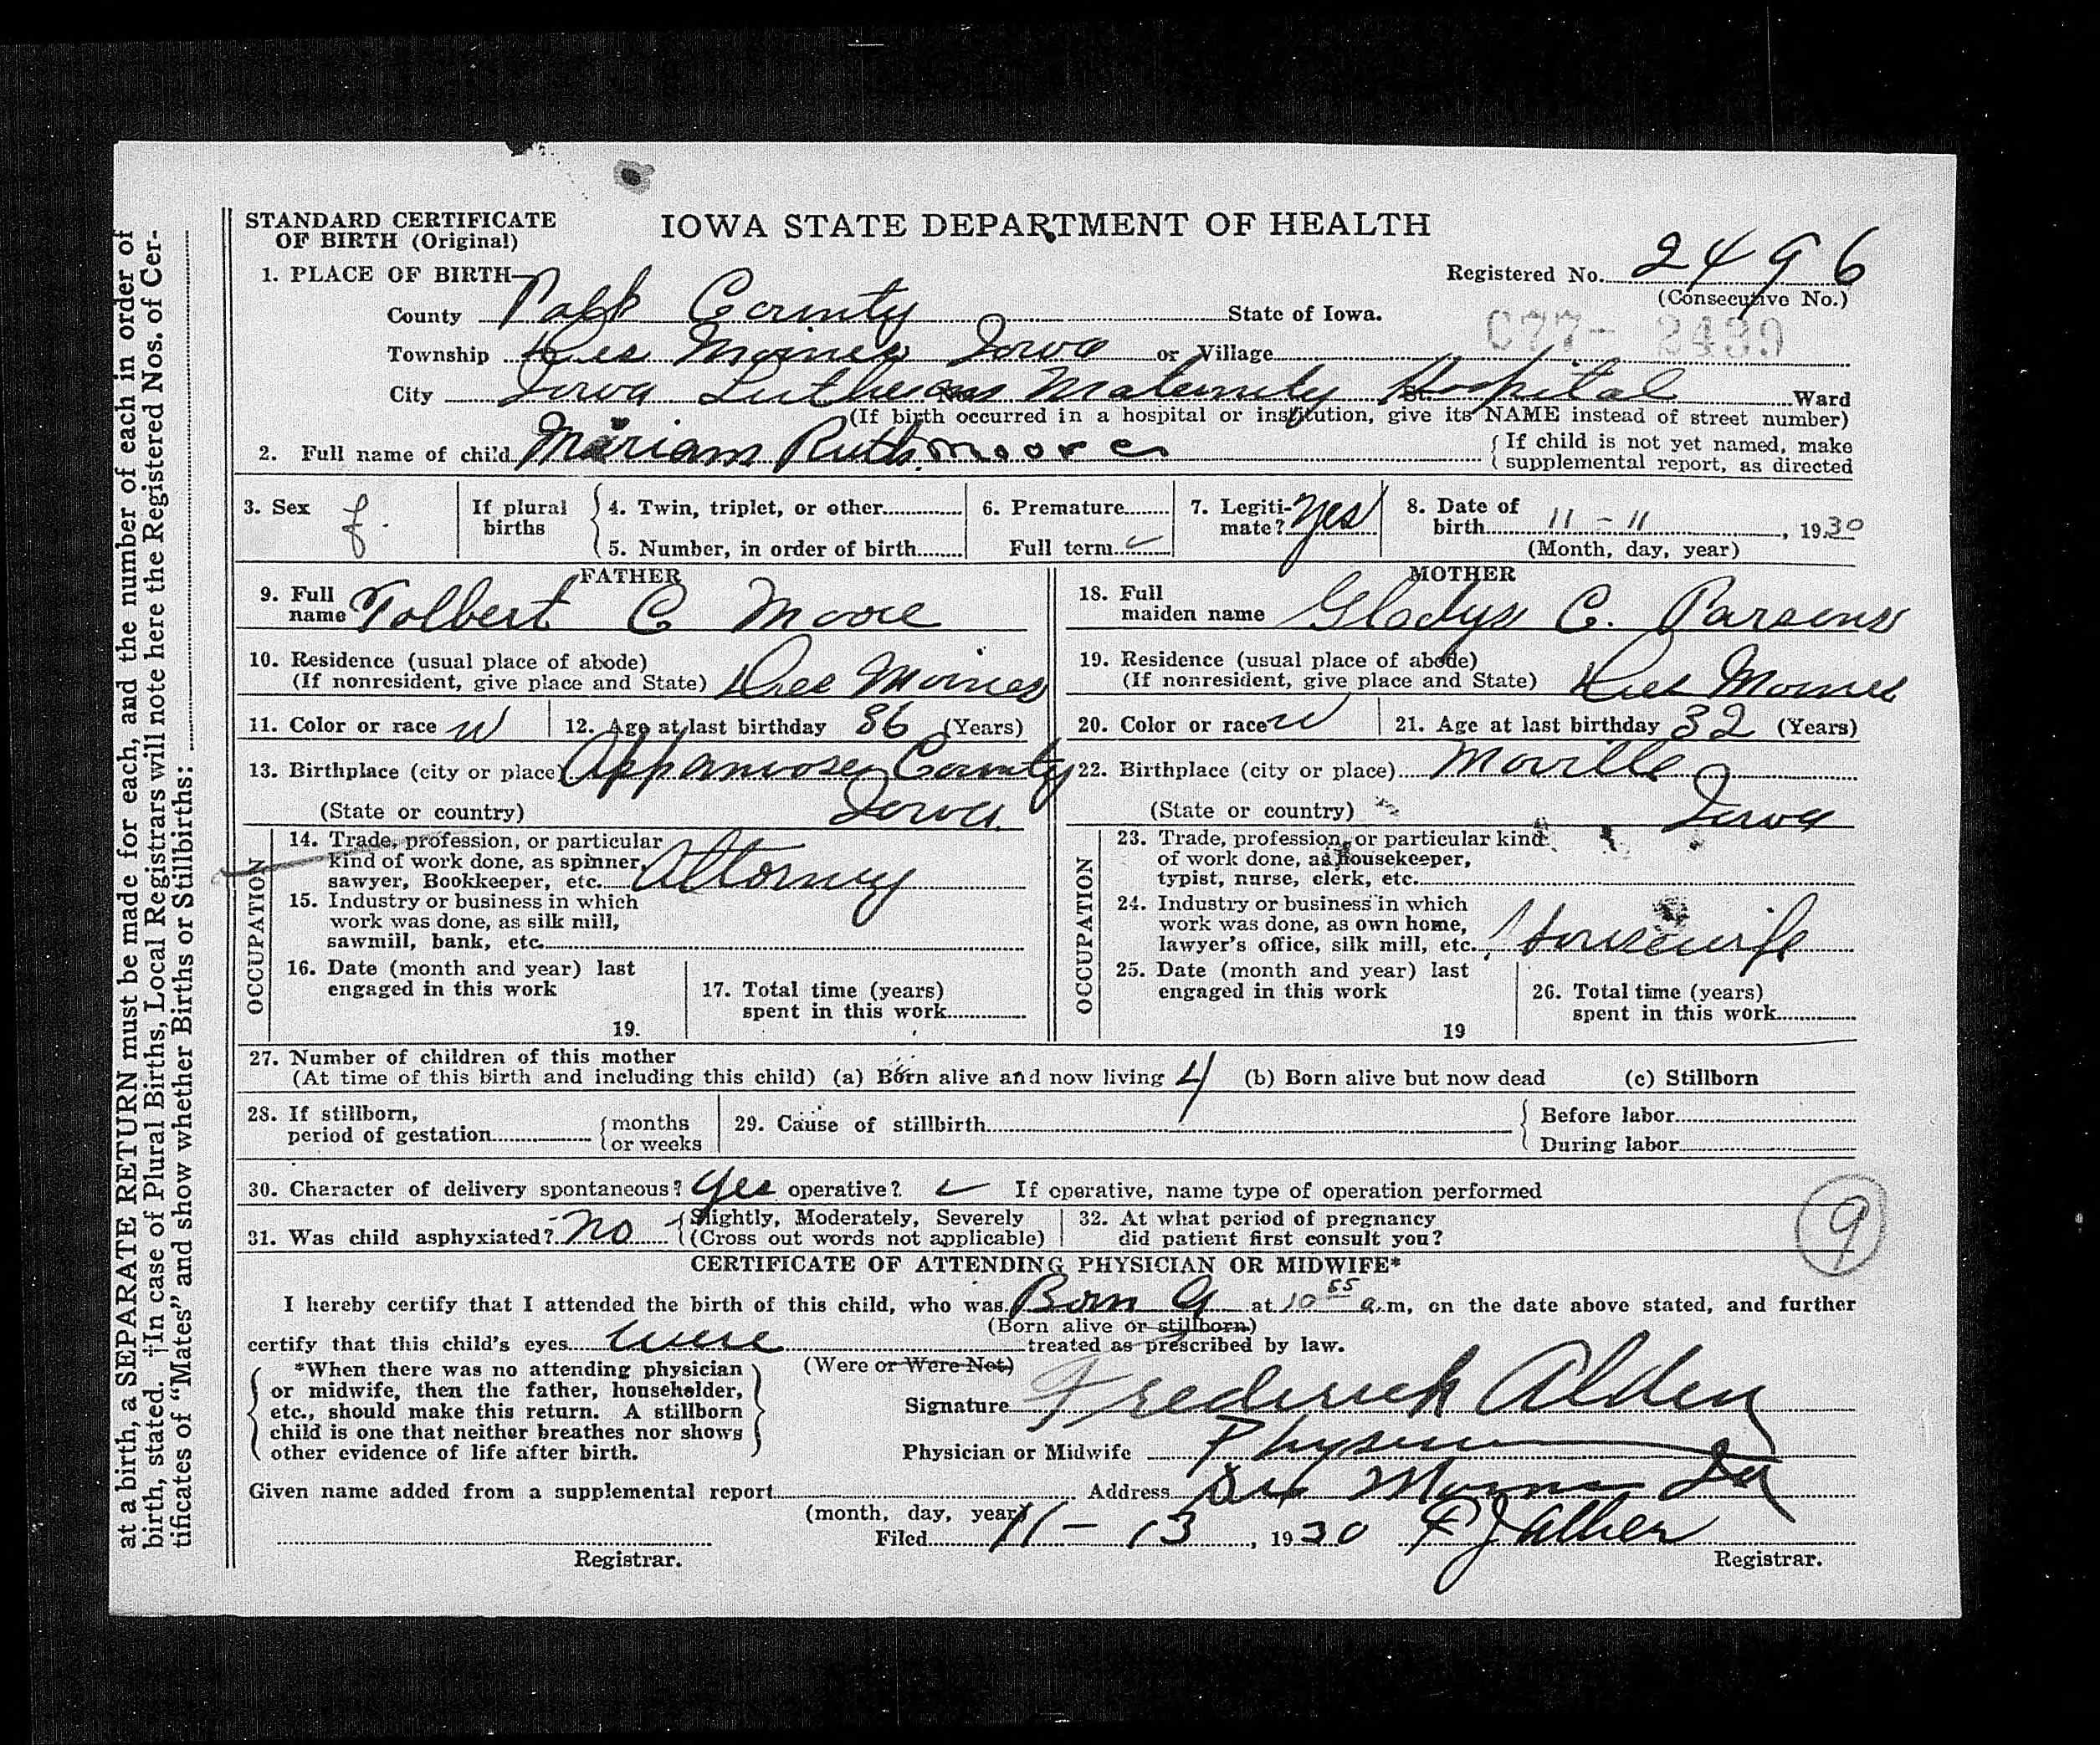 at a birth, a SEPARATE RETURN must be made for each, and the number of each in order of
birth, stated. †In case of Plural Births, Local Registrars will note here the Registered Nos. of Cer-
tificates of "Mates" and show whether Births or Stillbirths:
STANDARD CERTIFICATE
OF BIRTH (Original)
IOWA STATE DEPARTMENT OF HEALTH
Registered No. 2496
(Consecutive No.)
1. PLACE OF BIRTH—
County Polk County State of Iowa.
C77- 2439
Township Des Moines Iowa or Village
City Iowa Lutheran Maternity Hospital Ward
(If birth occurred in a hospital or institution, give its NAME instead of street number)
2. Full name of child Mariam Ruth Moore
{ If child is not yet named, make
supplemental report, as directed
3. Sex f.
If plural births
4. Twin, triplet, or other
5. Number, in order of birth
6. Premature
Full term ✓
7. Legiti-
mate? Yes
8. Date of
birth 11 - 11, 1930
(Month, day, year)
FATHER
9. Full
name Tolbert C Moore
10. Residence (usual place of abode)
(If nonresident, give place and State) Des Moines
11. Color or race W
12. Age at last birthday 36 (Years)
13. Birthplace (city or place) Appanoose County
(State or country) Iowa
OCCUPATION
14. Trade, profession, or particular
kind of work done, as spinner,
sawyer, Bookkeeper, etc. Attorney
15. Industry or business in which
work was done, as silk mill,
sawmill, bank, etc.
16. Date (month and year) last
engaged in this work
19.
17. Total time (years)
spent in this work
MOTHER
18. Full
maiden name Gladys C. Parsons
19. Residence (usual place of abode)
(If nonresident, give place and State) Des Moines
20. Color or race W
21. Age at last birthday 32 (Years)
22. Birthplace (city or place) Moville
(State or country) Iowa
OCCUPATION
23. Trade, profession, or particular kind
of work done, as housekeeper,
typist, nurse, clerk, etc.
24. Industry or business in which
work was done, as own home,
lawyer's office, silk mill, etc. Housewife
25. Date (month and year) last
engaged in this work
19
26. Total time (years)
spent in this work
27. Number of children of this mother
(At time of this birth and including this child) (a) Born alive and now living 4 (b) Born alive but now dead (c) Stillborn
28. If stillborn,
period of gestation { months
or weeks
29. Cause of stillbirth
{ Before labor
During labor
30. Character of delivery spontaneous? Yes operative? ✓ If operative, name type of operation performed
31. Was child asphyxiated? No { Slightly, Moderately, Severely
(Cross out words not applicable)
32. At what period of pregnancy
did patient first consult you?
9
CERTIFICATE OF ATTENDING PHYSICIAN OR MIDWIFE*
I hereby certify that I attended the birth of this child, who was Born a at 10 55 a.m, on the date above stated, and further
(Born alive or stillborn)
certify that this child's eyes were treated as prescribed by law.
(Were or Were Not)
*When there was no attending physician
or midwife, then the father, householder,
etc., should make this return. A stillborn
child is one that neither breathes nor shows
other evidence of life after birth.
Signature Frederick Alden
Physician or Midwife Physician
Given name added from a supplemental report
(month, day, year)
Address Des Moines Ia
Filed 11 - 13, 1930
Registrar.
Registrar.